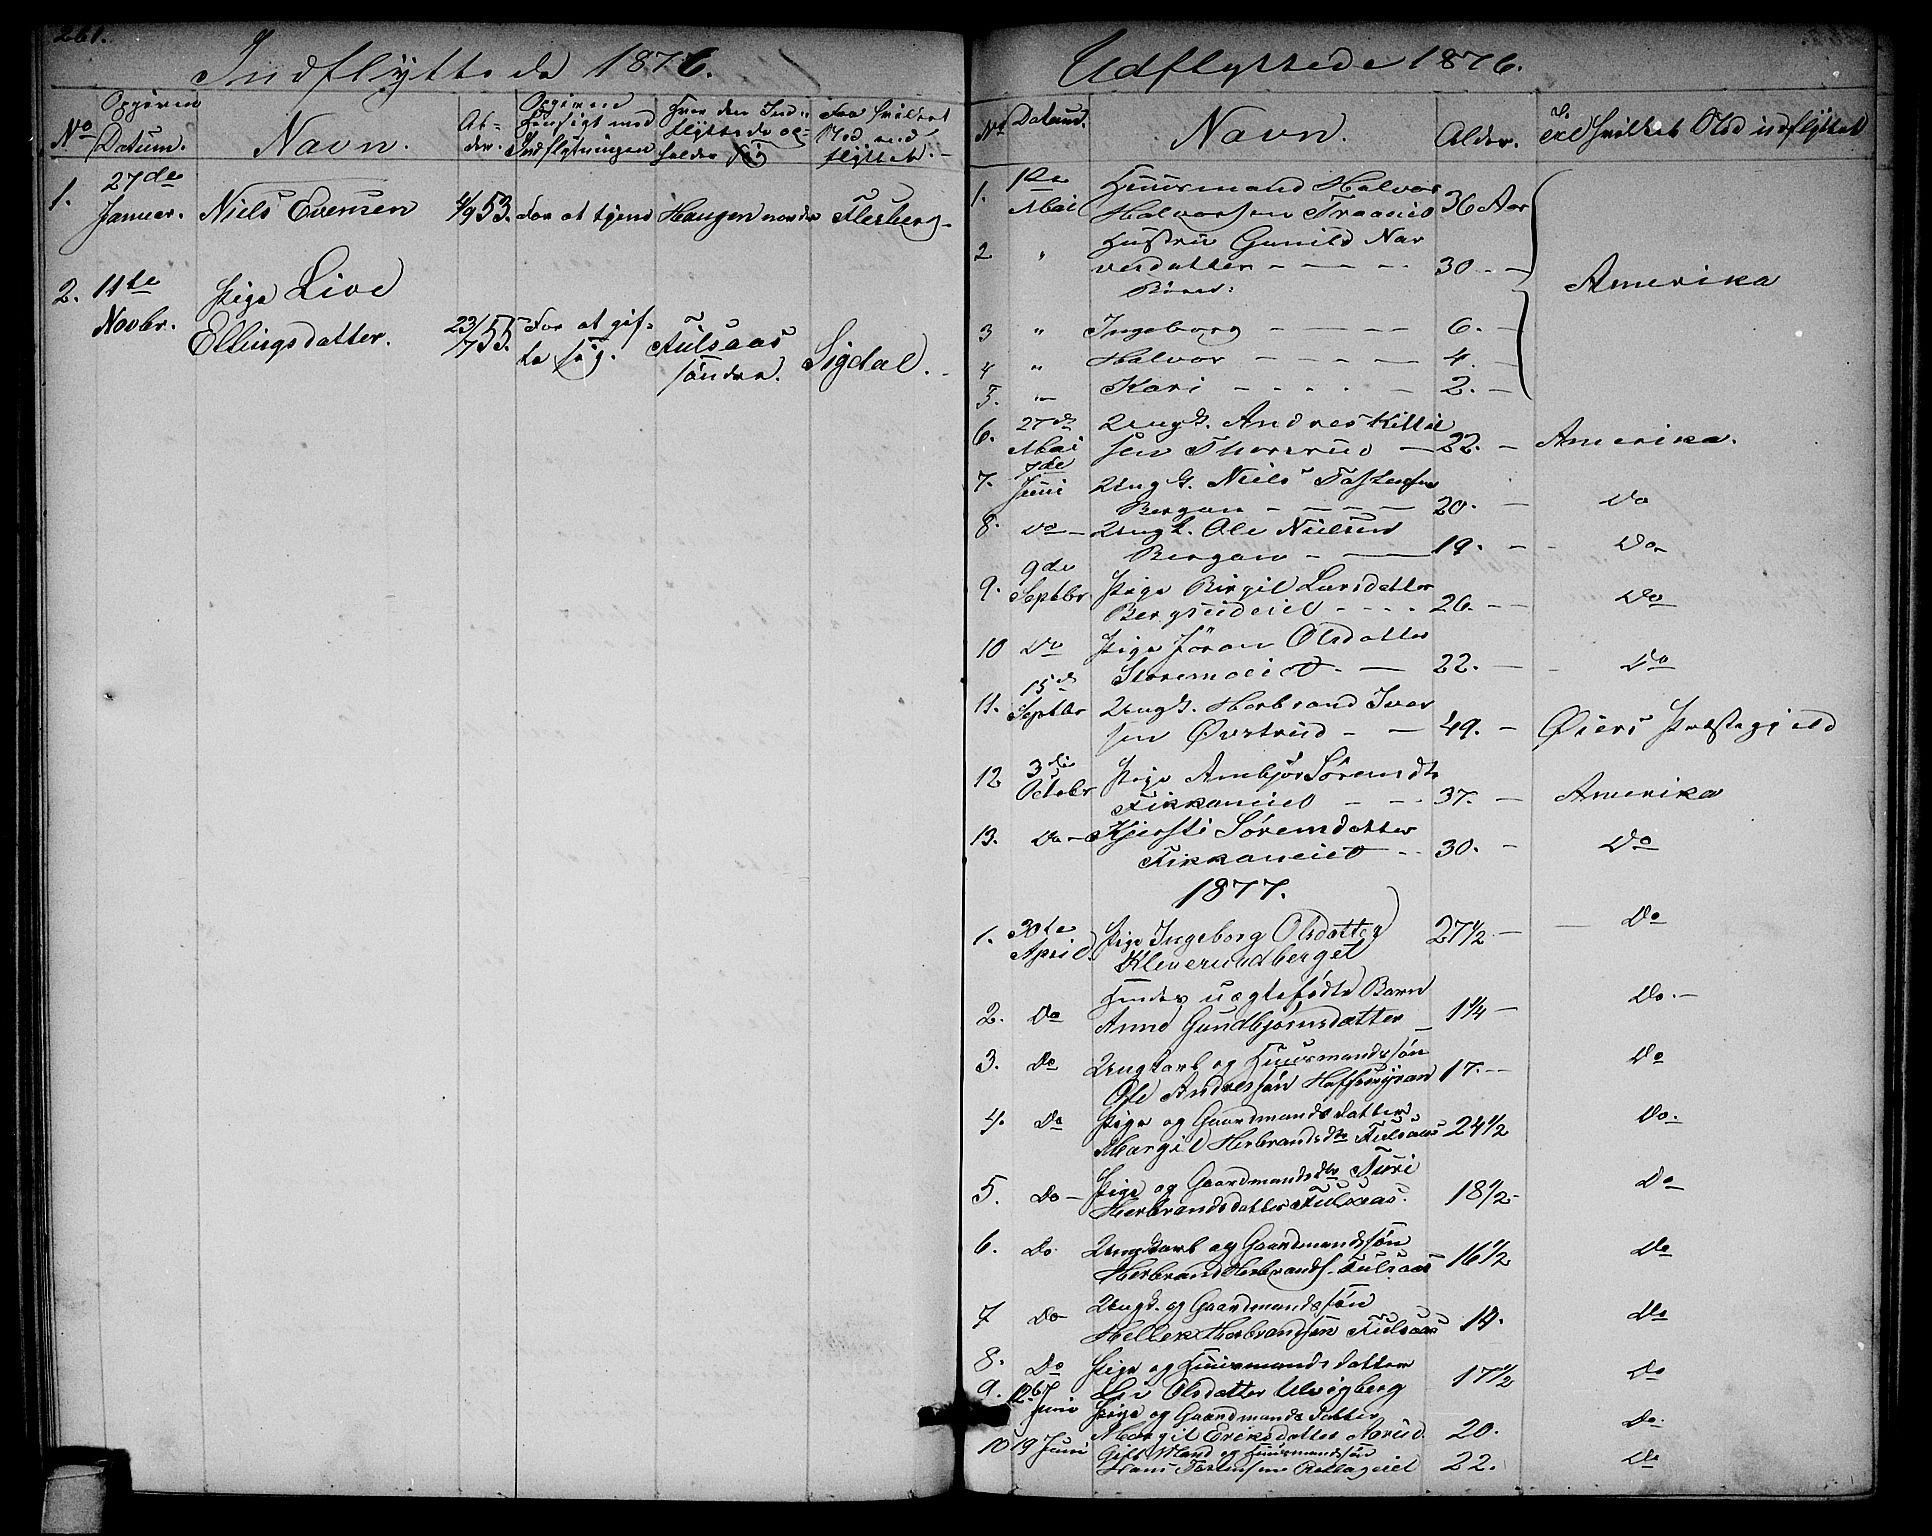 261.
Indflyttede 1876.
No
Opgivne Datum.
Navn.
Al-
der.
Opgivne
Hensigt med
Indflytningen
Hvor den Ind-
flyttede op-
holder sig
Fra hvilket
Sted ind-
flyttet.
1. 27de
Januar. Niels Evensen 4/9 53. For at tjene Haugen nordre Flesberg.
2. 11te
Novbr. Pige Live
Ellingsdatter. 23/7 55. For at gif-
te sig. Fulsaas
søndre. Sigdal.
Udflyttede 1876.
No Datum. Navn. Alder. Til hvilket Sted udflyttet
1. 1ste
Mai Huusmand Halvor
Halvorsen Traaeie 36 Aar
2 " Hustru Gunild Nar
vesdatter - - - - 30 - -
Børn:
Amerika
3 " Ingeborg - - - - 6. -
4 " Halvor - - - - 4. -
5. " Kari - - - - 2. -
6. 27de
Mai Ungk. Andres Kittil
sen Thorsrud - 22. - Amerika.
7. 7de
Juni Ungk. Niels Tostensen
Bergan - - - - 20. - Do
8. Do - Ungk. Ole Nielsen
Bergan - - 19. - - Do
9. 9de
Septbr Pige Birgit Larsdatter
Bergseideiet - - - - 26. - - Do
10 Do Pige Jøran Olsdatter
Storemoeiet - - 22. - - Do
11. 15de
Septbr Ungk. Herbrand Iver
sen Øvstrud - - 49. - Øiers Præstegjeld
12 3die
Octobr Pige Ambjør Sørensdtr
Fikkaneiet - - 37. - Amerika
13. Do - Kjersti Sørensdatter
Fikkaneiet - - 30. - Do
1877.
1. 30te
April Pige Ingeborg Olsdatter
Kleverudberget 27 1/2 - - Do
2. Do Hendes uægtefødte Barn
Anne Gundbjørnsdatter - 1 1/4 - Do. -
3. Do Ungkarl og Huusmandssøn
Ole Andersøn Hoffsmyran 17. - - Do
4. Do Pige og Gaardmandsdatter
Margit Herbrandsdtr Fulsaas 24 1/2 Do.
5. Do - Pige og Gaardmandsdtr Turi
Herbrandsdatter Fulsaas. 18 1/2 - Do
6. Do. Ungkarl og Gaardmandssøn
Herbrand Herbrands. Fulsaas 16 1/2 Do
7 Do Ungk. og Gaardmandssøn
Hellek Herbrandsen Fulsaas 14. Do
8. Do Pige og Huusmandsdatter
Liv Olsdatter Ulvigberg 17 1/2 Do
9.
Juni Pige og Gaardmandsdatter
Margit Eriksdatter Aarud. 20. Do.
10 19 Juni Gift Mand og Huusmandssøn
Hans Tostensen 22. Do